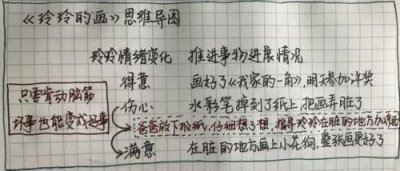 《玲玲的画》思维导图
玲玲情绪变化 推进事物进展情况
得意 画好了《我家的一角》,明天参加评奖
只要肯动脑筋
坏事也能变成好事
伤心 水彩笔掉到了纸上,把画弄脏了
爸爸放下报纸,仔细想了想,指导玲玲在脏的地方加添画
满意 在脏的地方画上小花狗,整张画更好了